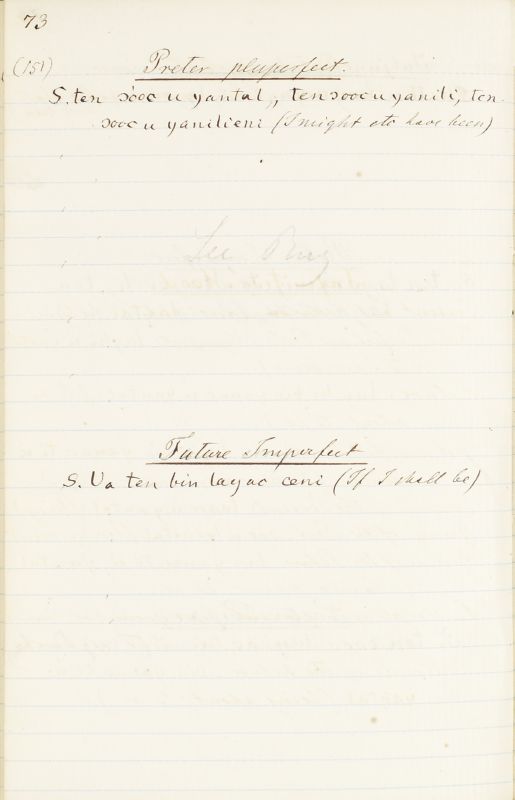 73
(151)
Preter pluperfect.
S. ten ɔooc u yantal, tenɔooc u yanili, ten
ɔooc u yanilieni (I might etc have been)
See Ruz
Future Imperfect
S. Ua ten bin layac ceni (If I shall be)